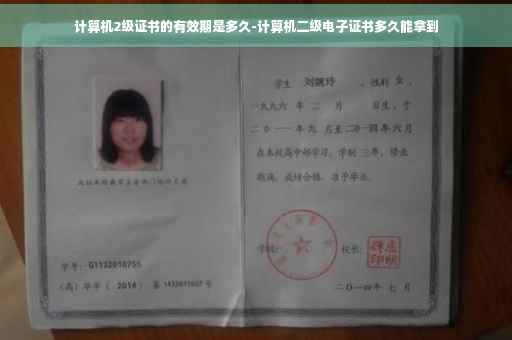 计算机2级证书的有效期是多久-计算机二级电子证书多久能拿到
学生 刘婉玲 ，性别 女 ，
一九九六 年 二 月 日生，于
二〇一一年 九 月至 二〇一四年 六 月
在本校高中部学习，学制 三年，修业
期满，成绩合格，准予毕业。
学校： 校长：
学号： G1132010755
（高）毕字（ 2014 ）第 1432011607 号
二〇一四年 七 月